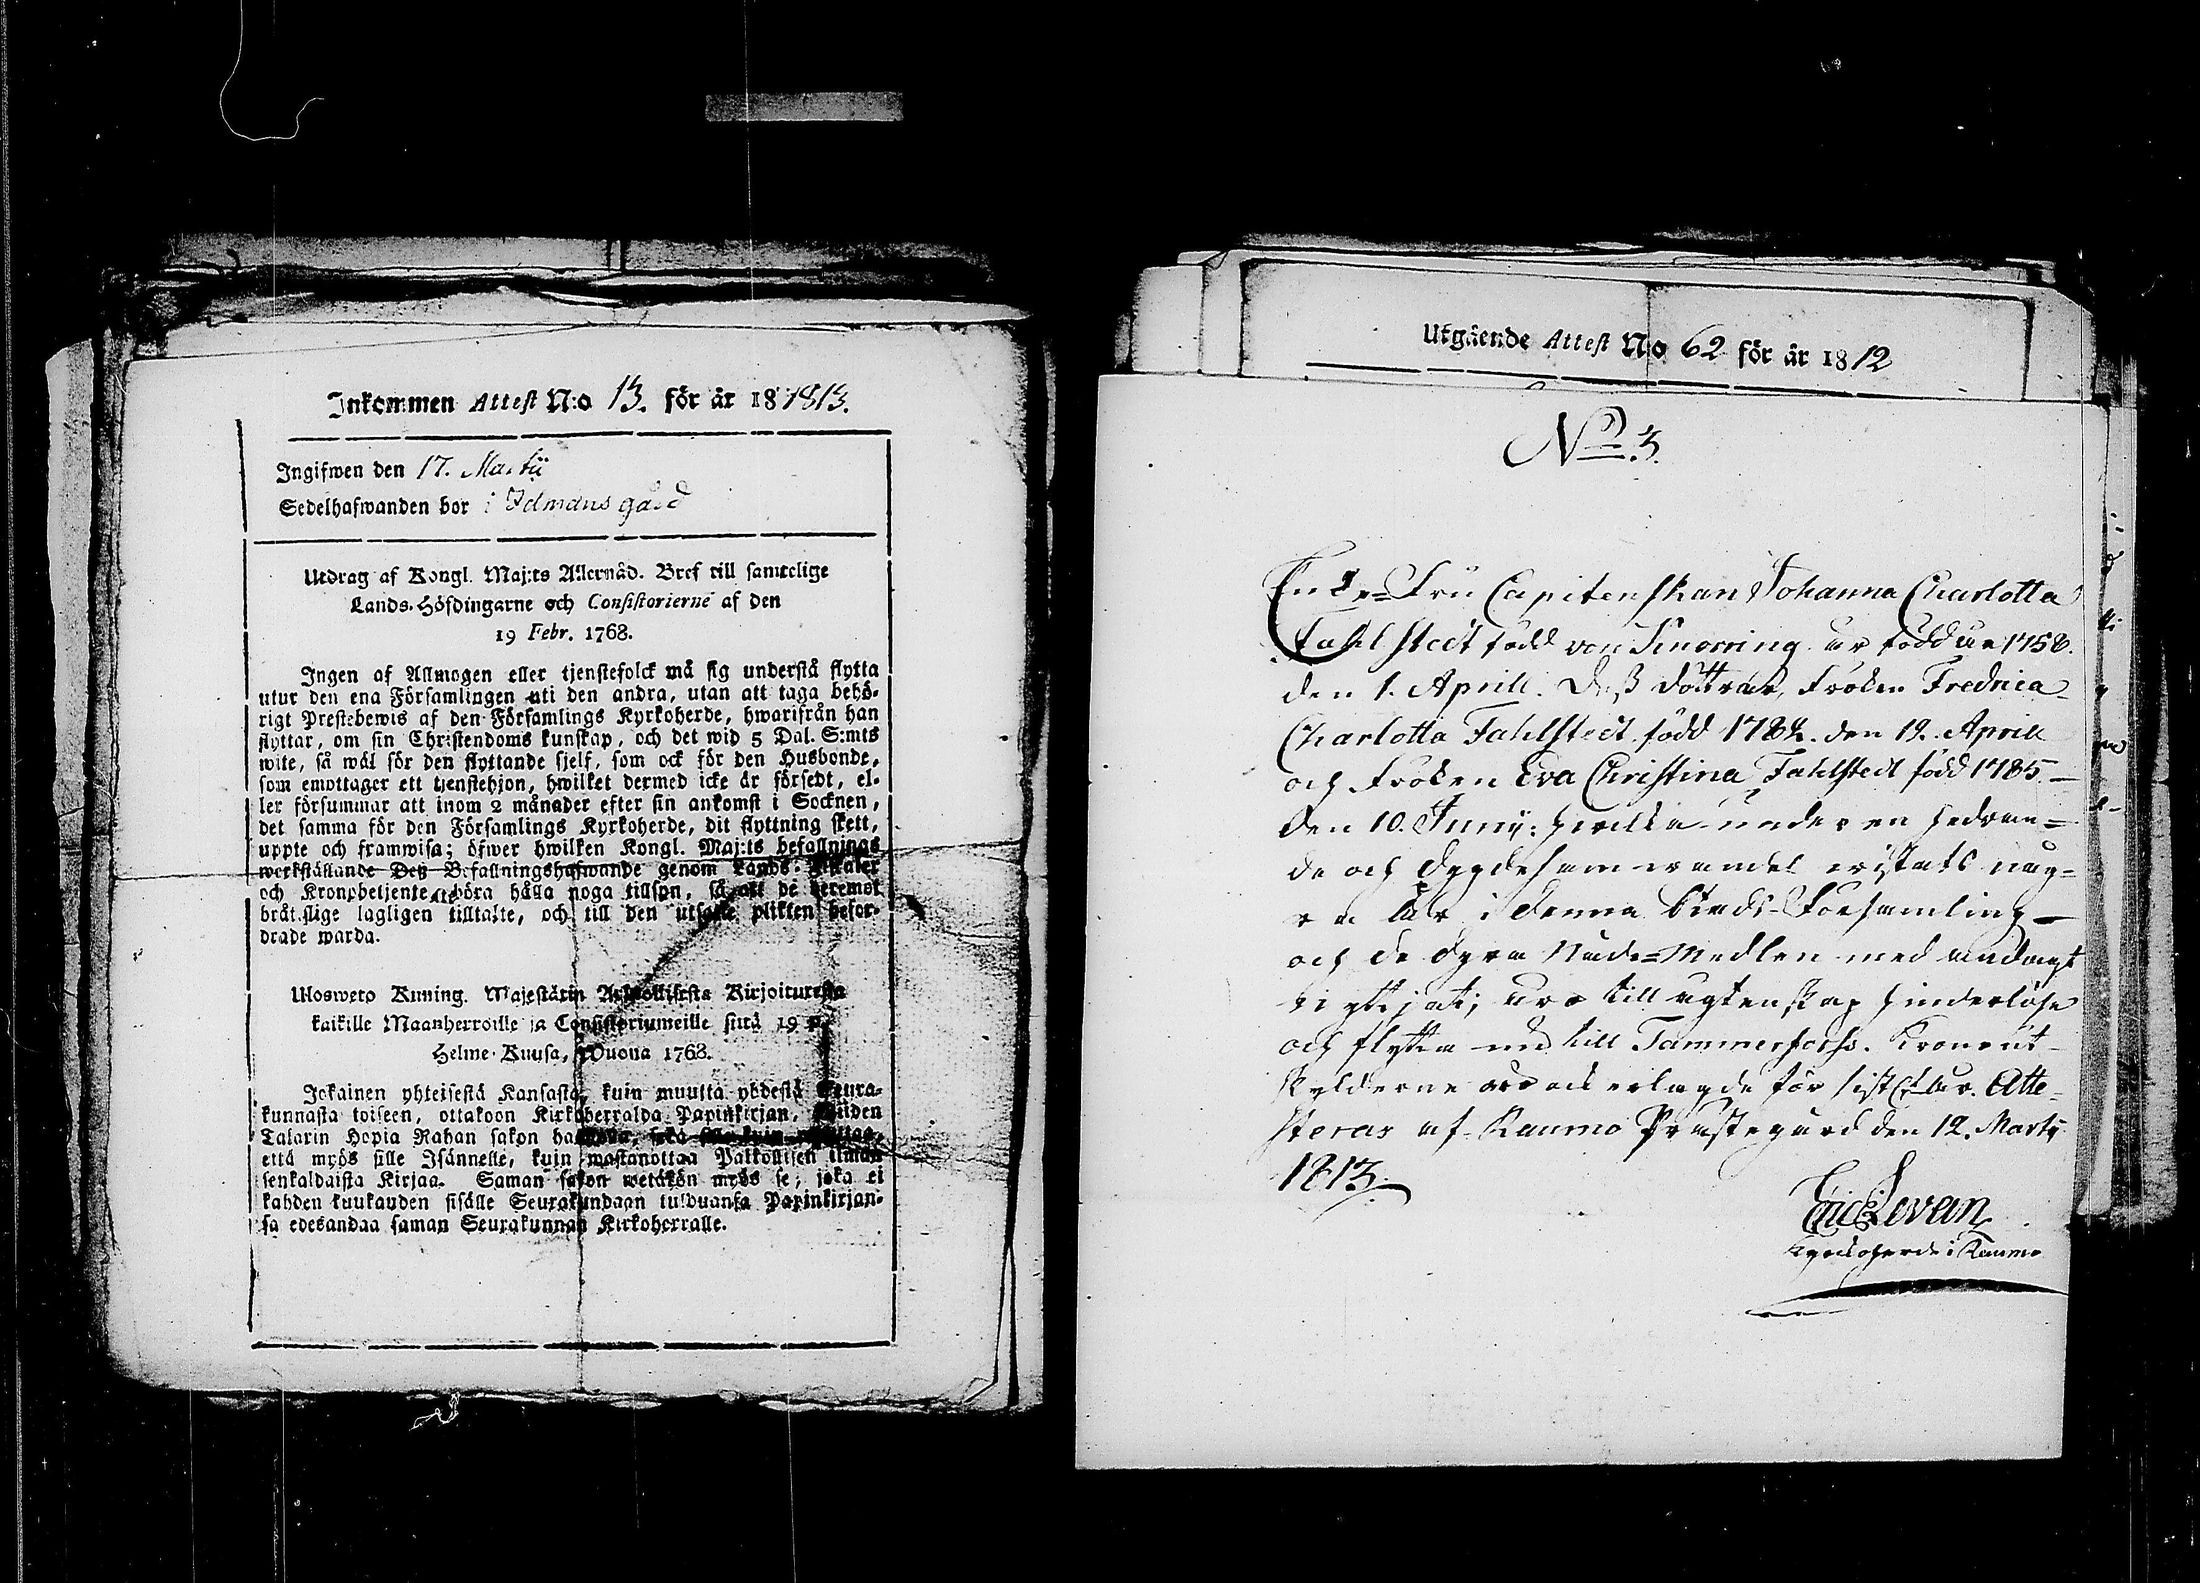 Inkommen Attest N:o 13. för år 18 1813.
Ingifwen den 17. Martii
Sedelhafwanden bor i Idmans gård
Utdrag af Kongl. Maj:ts Allernåd. Bref till samtelige
Lands-Höfdingarne och Consistorierne af den
19 Febr. 1768.
Ingen af Allmogen eller tjenstefolck må sig understå flytta
utur den ena Församlingen uti den andra, utan att taga behö-
rigt Prestebewis af den Församlings Kyrkoherde, hwarifrån han
flyttar, om sin Christendoms kunskap, och det wid 5 Dal. S:mts
wite, så wäl för den flyttande sjelf, som ock för den Husbonde,
som emottager ett tjenstehjon, hwilket dermed icke är försedt, el-
ler försummar att inom 2 månader efter sin ankomst i Socknen,
det samma för den Församlings Kyrkoherde, dit flyttning skett,
uppte och framwisa; öfwer hwilken Kongl. Maj:ts befallnings
werkställande Deß Befallningshafwande genom Lands-Fiskaler
och Kronobetjente böra hålla noga tillsyn, så att de deremot
bråtslige lagligen tilltalte, och till den utsatte plikten befor-
drade warda.
Ulosweto Kuning. Majestätin Armollisesta Kirjoituxesta
kaikille Maanherroille ja Consistoriumeille siitä 19 p.
Helme-Kuusa, Wuona 1768.
Jokainen yhteisestä Kansasta, kuin muutta yhdestä Seura-
kunnasta toiseen, ottakoon Kirkoherralda Papinkirjan, Wiiden
Talarin Hopia Rahan sakon
että myös sille Isännelle, kuin wastanottaa Palkollisen ilman
senkaldaista Kirjaa. Saman sakon wetäkön myös se, joka ei
kahden kuukauden sisälle Seurakundaan tulduansa Papinkirjan-
sa edesandaa saman Seurakunnan Kirkoherralle.
Utgående Attest N:o 62 för år 1812
No 3.
Enke-Fru Capitenskan Johanna Charlotta
Fahlstedt född von Knorring är född år 1758.
den 1. Aprill. Deß döttrar, Fröken Fredrica
Charlotta Fahlstedt född 1784. den 19. Aprill
och Fröken Eva Christina Fahlstedt född 1785.
den 10. Junij: hvilka under en hedran-
de och dygdesam vandel vistats någ-
ra år i denna Stads-Församling
och de dyra Nåde-Medlen med andagt
vigtjat; äro till ägtenskap hinderlöse
och flytta nu till Tammerforss. Kronout-
skylderne äro ock erlagde för sistl. år. Atte-
steras af Raumo Prästegård den 12. Martii
1813.
Eric Levan
Kyrckoherde i Raumo